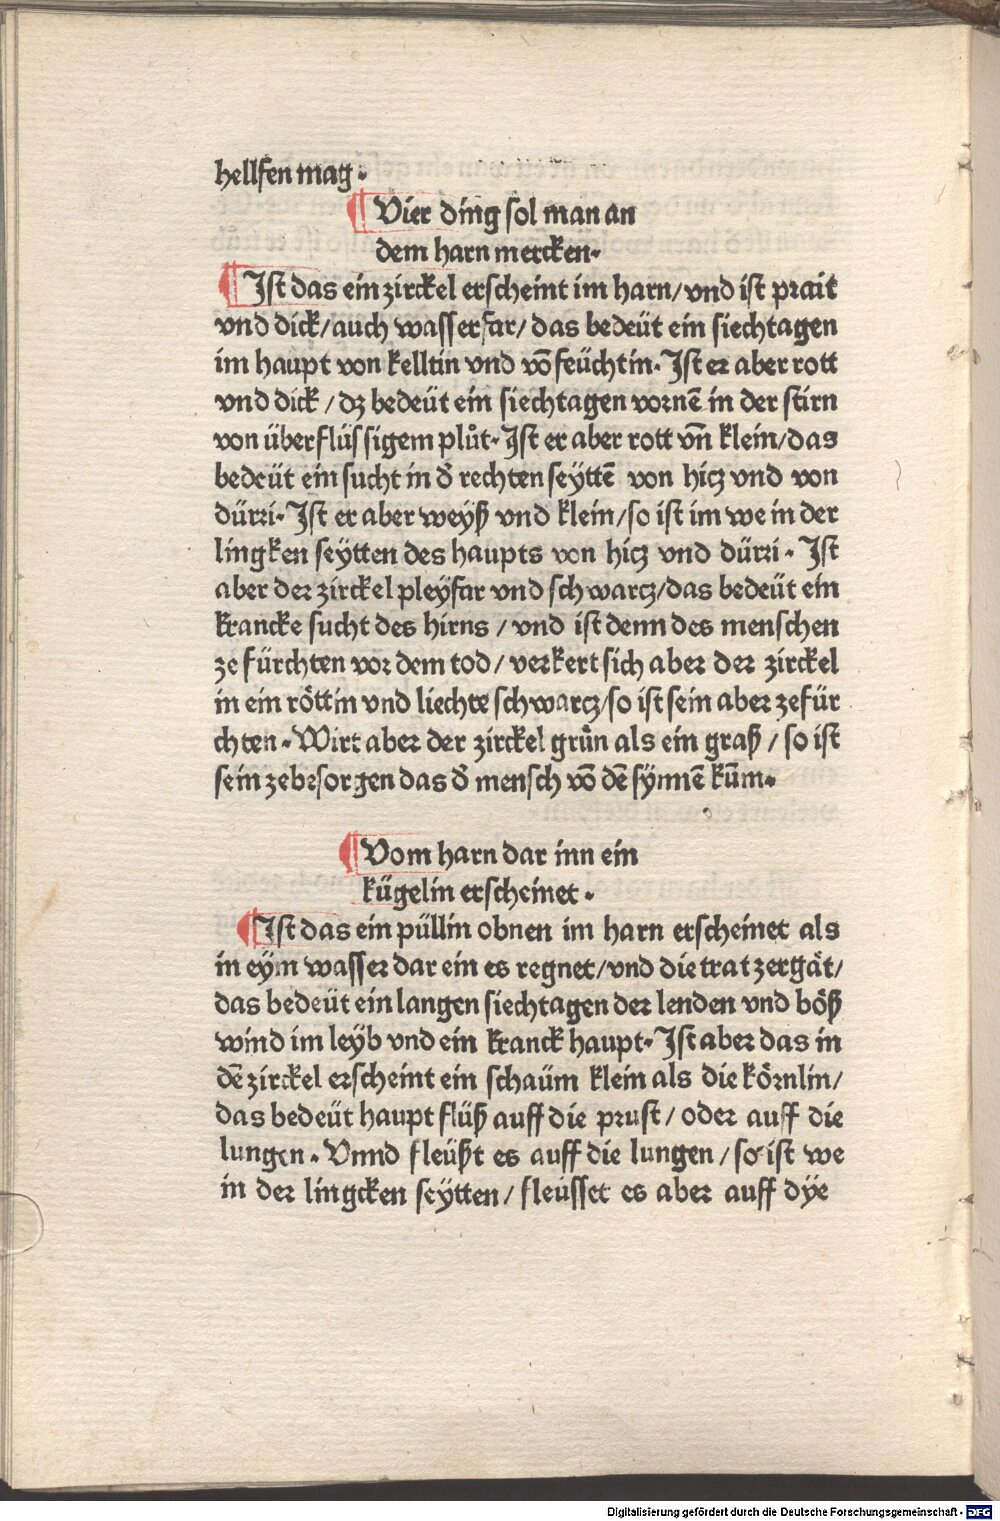 hellfen mag.
Vier ding sol man an
dem harn mercken.
Ist das ein zirckel erscheint im harn/vnd ist prait
vnd dick/auch wasserfar/das bedeüt ein siechtagen
im haupt von kelltin vnd vō feüchtin. Ist er aber rott
vnd dick/dz bedeüt ein siechtagen vornē in der stirn
von überflüssigem plůt. Ist er aber rott vn̄ klein/das
bedeüt ein sucht in d̄ rechten seyttē von hicz vnd von
dürri. Ist er aber weyß vnd klein/so ist im we in der
lingken seytten des haupts von hicz vnd dürri. Ist
aber der zirckel pleyfar vnd schwarcz/das bedeüt ein
krancke sucht des hirns/vnd ist denn des menschen
ze fürchten vor dem tod/verkert sich aber der zirckel
in ein röttin vnd liechte schwarcz/so ist sein aber zefür
chten. Wirt aber der zirckel grůn als ein graß/so ist
sein zebesorgen das d̄ mensch vō dē synnē kūm.
Vom harn dar inn ein
kügelin erscheinet.
Ist das ein püllin obnen im harn erscheinet als
in eym wasser dar ein es regnet/vnd die trat zergät/
das bedeüt ein langen siechtagen der lenden vnd böß
wind im leyb vnd ein kranck haupt. Ist aber das in
dē zirckel erscheint ein schaüm klein als die körnlin/
das bedeüt haupt flüß auff die prust/oder auff die
lungen. Vnnd fleüßt es auff die lungen/so ist we
in der lingcken seytten/fleüsset es aber auff dye
Digitalisierung gefördert durch die Deutsche Forschungsgemeinschaft - DFG